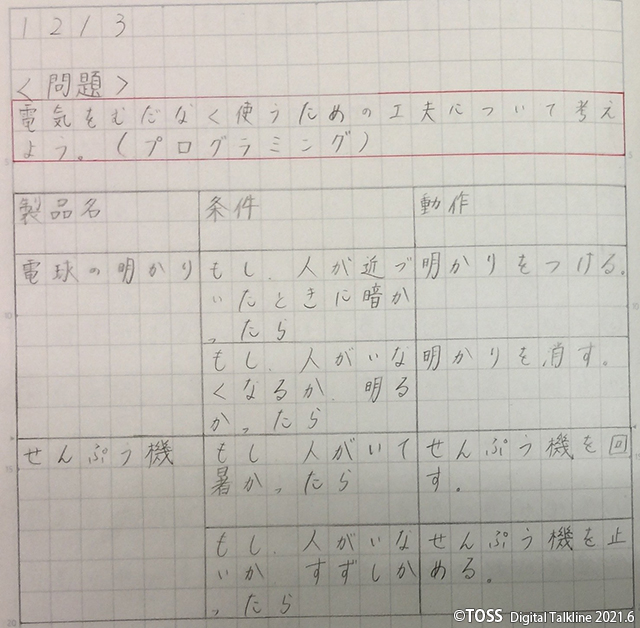 12/3
<問題>
電気をむだなく使うための工夫について考え
よう。(プログラミング)
製品名 条件 動作
電球の明かり もし、人が近づ 明かりをつける。
いたときに暗か
ったら
もし、人がいな 明かりを消す。
くなるか、明る
かったら
せんぷう機 もし、人がいて せんぷう機を回
暑かったら す。
もし、人がいな せんぷう機を止
いか、すずしか める。
ったら
©TOSS Digital Talkline 2021.6